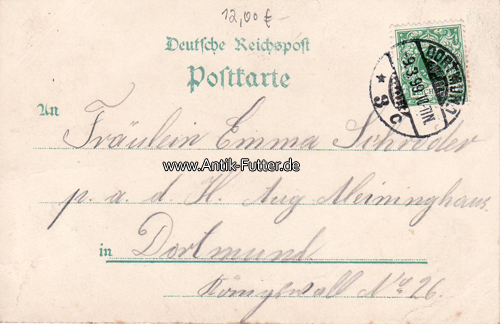 12,00 €-
Deutsche Reichspost
Postkarte
DORTMUND
9.3.99
* 3 c
An
Fräulein Emma Schröder
www.Antik-Futter.de
p. a. d. H. Aug Meininghaus.
in Dortmund
Königswall No 26.